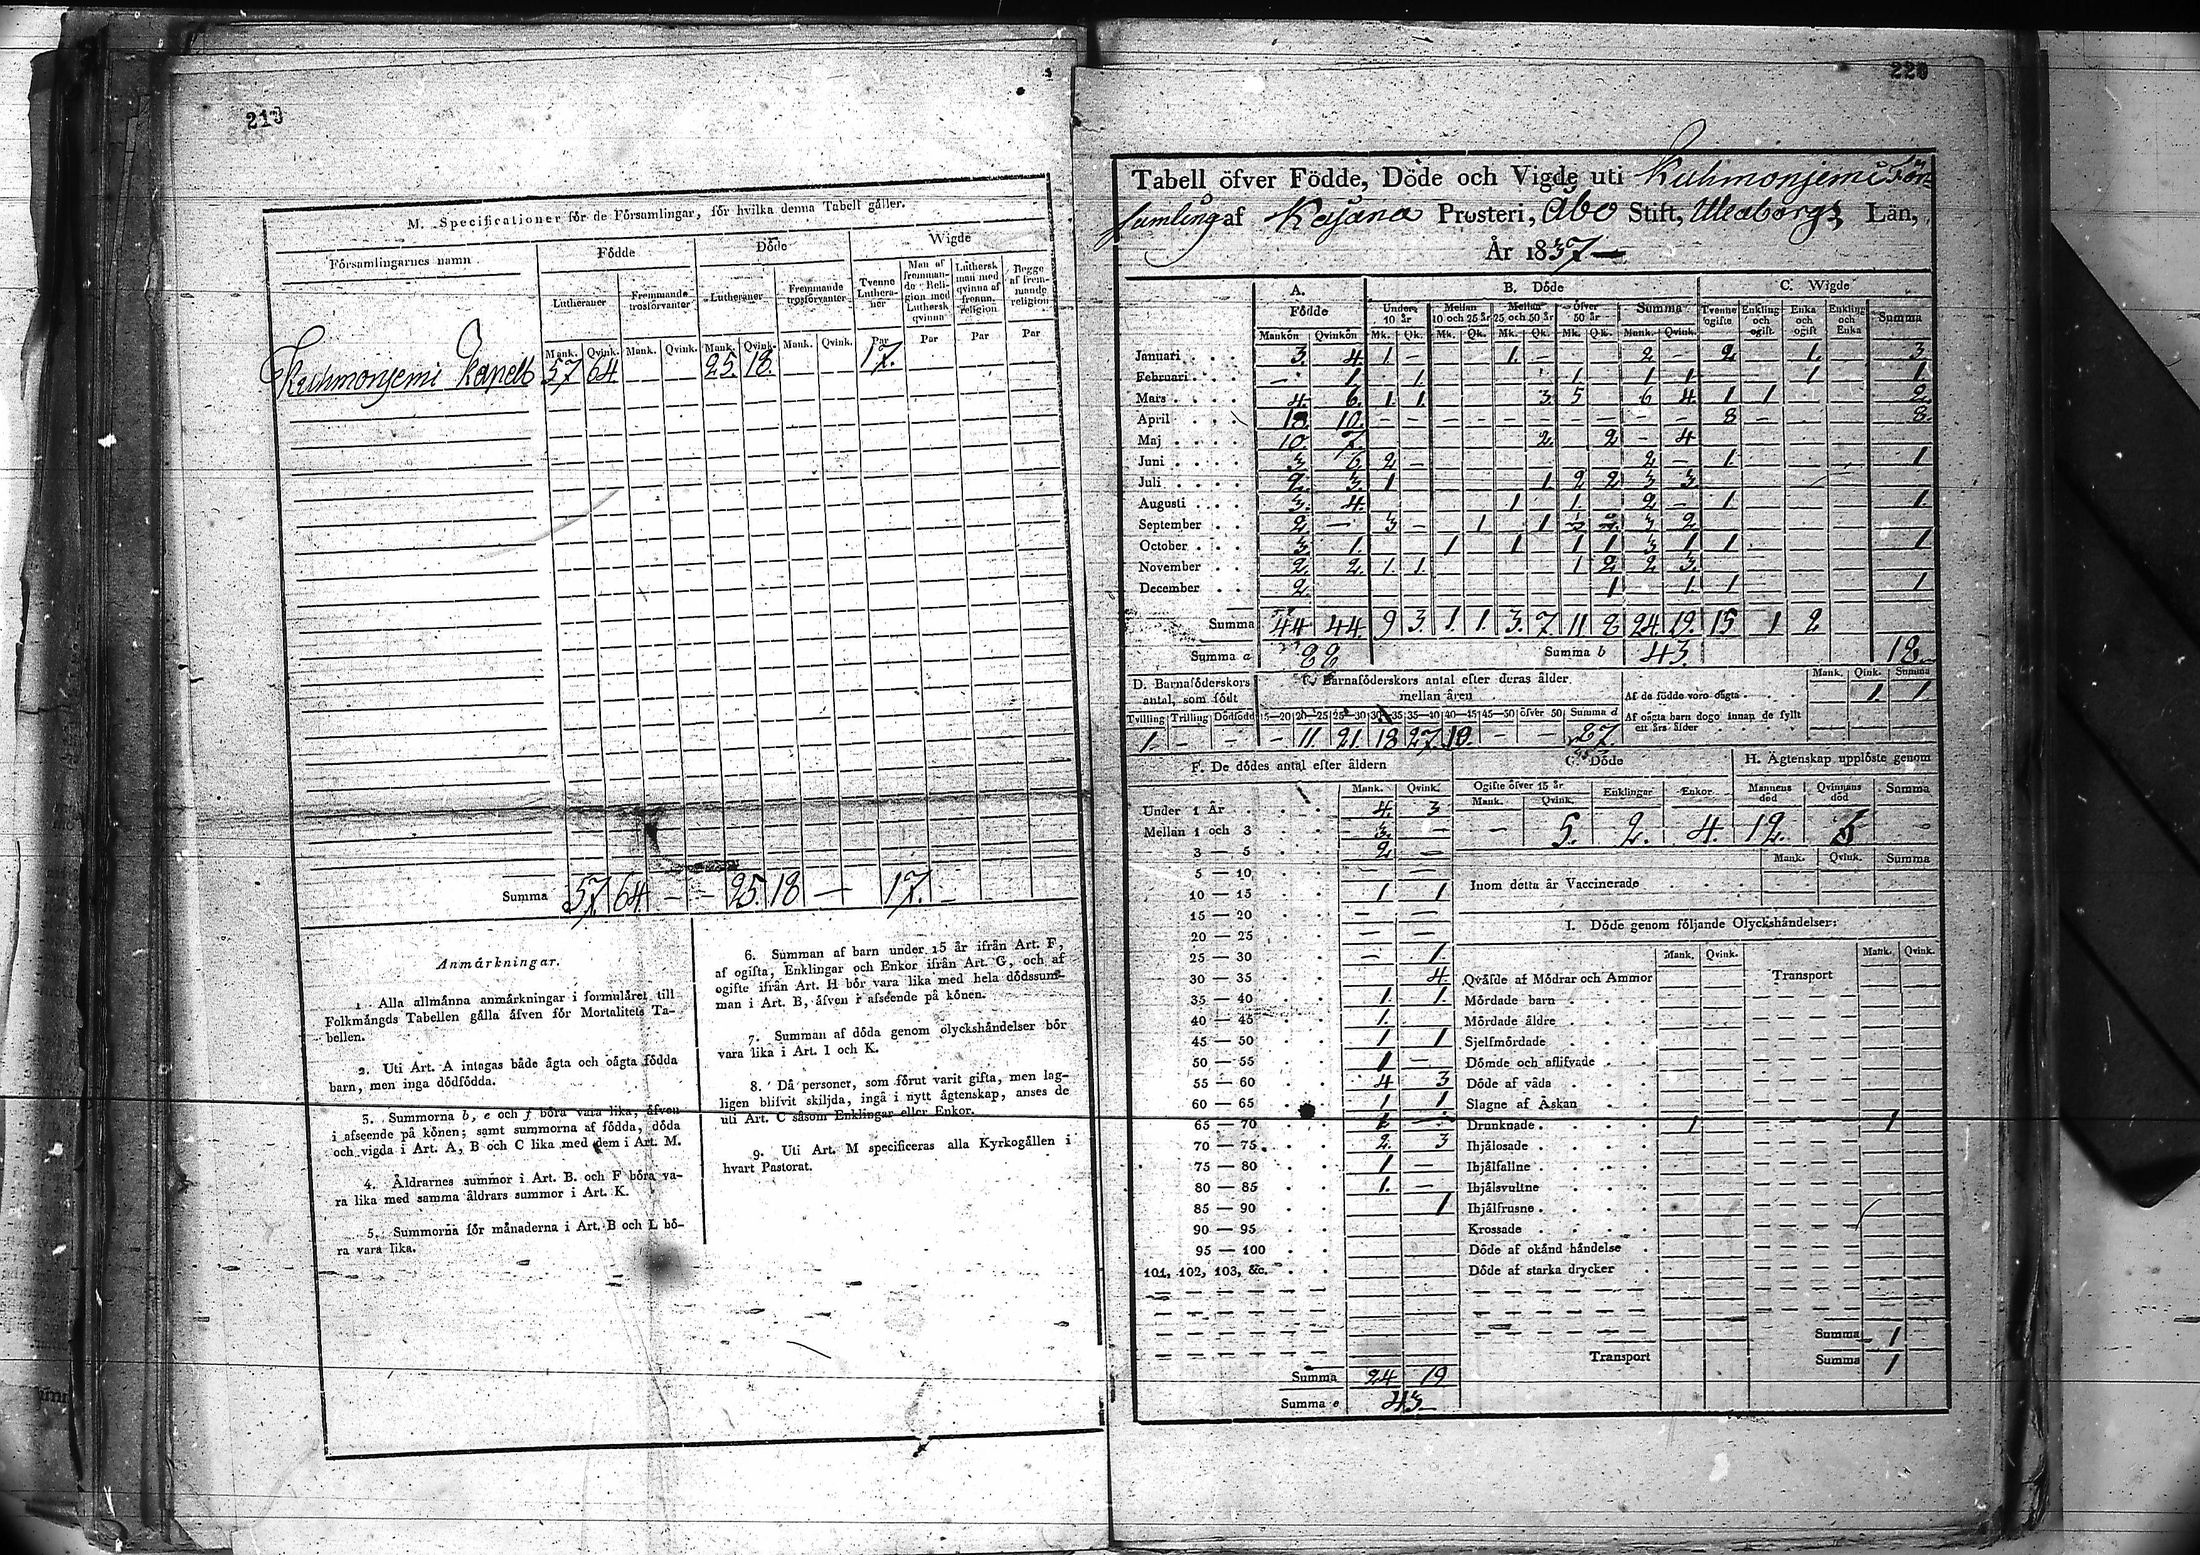 219
M. Specificationer för de Församlingar, för hvilka denna Tabell gäller.
Församlingarnes namn
Födde
Döde
Wigde
Lutheraner
Fremmande trosförvanter
Lutheraner
Fremmande trosförvanter
Tvenne Lutheraner
Man af fremmande Religion med Luthersk qvinna
Luthersk man med qvinna af fremm. religion
Begge af fremmande religion
Mank. Qvink. Mank. Qvink. Mank. Qvink. Mank. Qvink. Par Par Par Par
Kuhmonjemi Kapell 57 64 25. 18. 17.
Summa 57. 64 — — 25. 18 — 17. —
Anmärkningar.
1. Alla allmänna anmärkningar i formuläret till
Folkmängds Tabellen gälla äfven för Mortalitets Ta-
bellen.
2. Uti Art. A intagas både ägta och oägta födda
barn, men inga dödfödda.
3. Summorna b, e och f böra vara lika, äfven
i afseende på könen; samt summorna af födda, döda
och vigda i Art. A, B och C lika med dem i Art. M.
4. Åldrarnes summor i Art. B. och F böra va-
ra lika med samma åldrars summor i Art. K.
5. Summorna för månaderna i Art. B och L bö-
ra vara lika.
6. Summan af barn under 15 år ifrån Art. F,
af ogifta, Enklingar och Enkor ifrån Art. G, och af
ogifte ifrån Art. H bör vara lika med hela dödssum-
man i Art. B, äfven i afseende på könen.
7. Summan af döda genom olyckshändelser bör
vara lika i Art. I och K.
8. Då personer, som förut varit gifta, men lag-
ligen blifvit skiljda, ingå i nytt ägtenskap, anses de
uti Art. C såsom Enklingar eller Enkor.
9. Uti Art. M specificeras alla Kyrkogällen i
hvart Pastorat.
220
Tabell öfver Födde, Döde och Vigde uti Kuhmonjemi För-
samling af Kajana Prosteri, Åbo Stift, Uleaborgs Län,
År 1837—
A. Födde
B. Döde
C. Wigde
Under 10 år
Mellan 10 och 25 år
Mellan 25 och 50 år
öfver 50 år
Summa
Tvenne ogifte
Enkling och ogift
Enka och ogift
Enkling och Enka
Summa
Mankön Qvinkön Mk. Qk. Mk. Qk. Mk. Qk. Mk. Qk. Mank. Qvink.
Januari 3. 4 1 — 1. — 2 — 2 1. 3
Februari — 1. 1. 1 1 1 1 1.
Mars 4. 6. 1. 1. 3. 5 6 4. 1 1 2.
April 18 10. — — — — — — — — — — 8 — 8.
Maj 10. 7. 2. 2 — 4
Juni 3 6 2 — 2 — 1. 1
Juli 2. 3. 1 1 2 2 3 3.
Augusti 3. 4. 1 1. 2 — 1 1.
September 2 — 3 — 1 1 3 2
October 3 1. 1 1 1 1 3 1 1 1
November 2. 2. 1. 1. 1 2 2 3.
December 2. 1 1. 1 1
Summa 44 44. 9 3. 1. 1. 3. 7 11 8 24. 19. 15 1 2
Summa a 88 Summa b 43. 18
D. Barnaföderskors antal, som födt
E. Barnaföderskors antal efter deras ålder mellan åren
Mank. Qink. Summa
Af de födde voro oägta 1 1.
Tvilling Trilling Dödfödde 15—20 20—25 25—30 30—35 35—40 40—45 45—50 öfver 50 Summa d
Af oägta barn dogo innan de fyllt ett års ålder
1. — — — 11. 21. 18 27. 10. — — 87.
F. De dödes antal efter åldern
G. Döde
H. Ägtenskap upplöste genom
Mank. Qvink.
Ogifte öfver 15 år
Mank. Qvink.
Enklingar
Enkor
Mannens död
Qvinnans död
Summa
— 5. 2. 4. 12. 5
Under 1 År 4. 3
Mellan 1 och 3 3. —
3 — 5 2 —
5 — 10 — —
10 — 15 1 1
15 — 20 — —
20 — 25 — —
25 — 30 — 1.
30 — 35 4.
35 — 40 1. 1.
40 — 45 1.
45 — 50 1 1
50 — 55 1 —
55 — 60 4 3
60 — 65 1 1
65 — 70
70 — 75 2. 3
75 — 80 1 —
80 — 85 1. —
85 — 90 1
90 — 95
95 — 100
101, 102, 103, &c.
Summa 24 19
Summa e 43—
Mank. Qvink. Summa
Inom detta år Vaccinerade
I. Döde genom följande Olyckshändelser:
Mank. Qvink. Mank. Qvink.
Qväfde af Mödrar och Ammor Transport
Mördade barn
Mördade äldre
Sjelfmördade
Dömde och aflifvade
Döde af våda
Slagne af Åskan
Drunknade 1 1
Ihjälosade
Ihjälfallne
Ihjälsvultne
Ihjälfrusne
Krossade
Döde af okänd händelse
Döde af starka drycker
Summa 1 —
Transport Summa 1